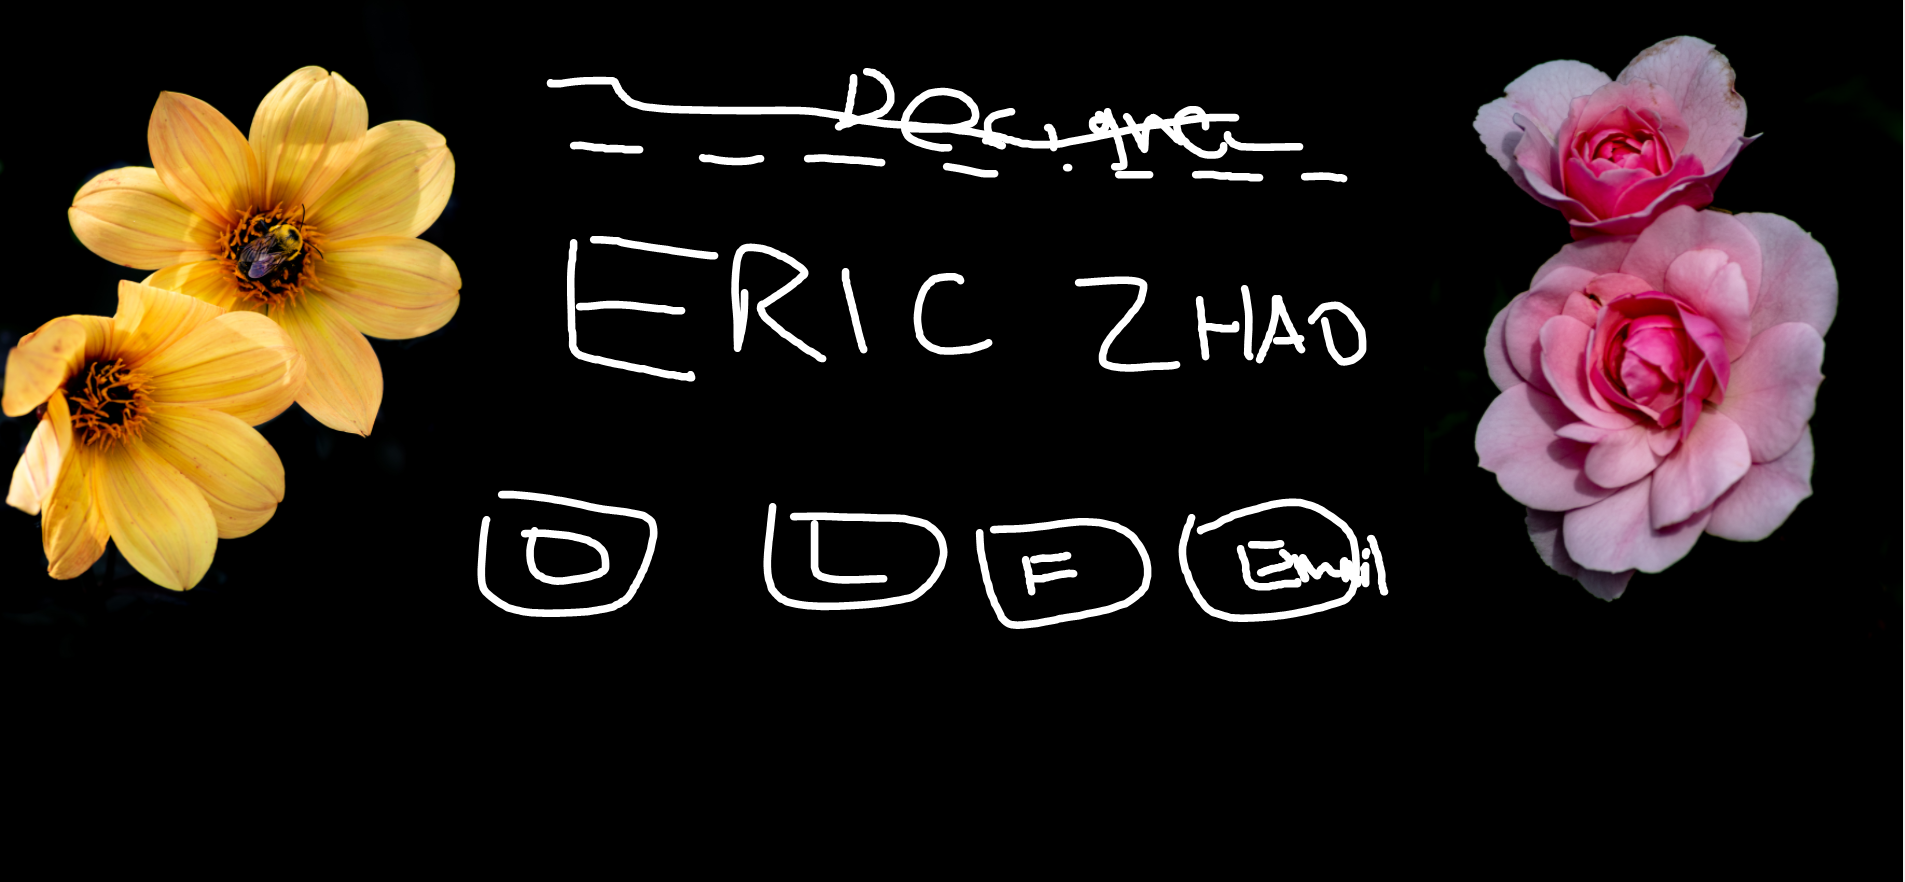 Designer
ERIC ZHAO
D L F Email